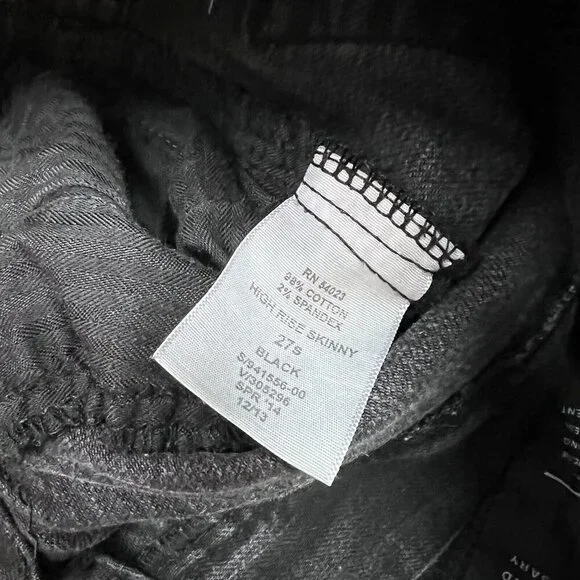 RN 54023
98% COTTON
2% SPANDEX
HIGH RISE SKINNY
27S
BLACK
S/941556-00
V/303296
SPR '14
12/13